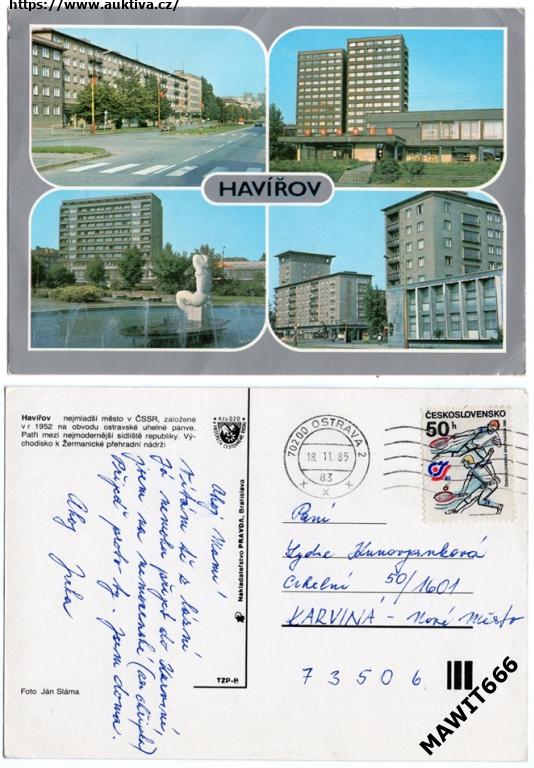 https://www.auktiva.cz/
HAVÍŘOV
Havířov nejmladší město v ČSSR, založené
v r 1952 na obvodu ostravské uhelné pánve.
Patří mezi nejmodernější sídliště republiky. Vý-
chodisko k Žermanické přehradní nádrži
Kčs 020
Nakladatelství PRAVDA, Bratislava
TZP-B
Foto Ján Sláma
Ahoj Mami!
Vítám tě z lázní
Já nemohu přijet do Karviné,
jsem na nemocenské
Přijeď proto ty. Jsem doma.
Ahoj
70200 OSTRAVA 2
18.11.85
83
ČESKOSLOVENSKO
50 h
Paní
Lydie
Cihelní 50/1601
KARVINÁ - Nové Město
73506
MAWIT666